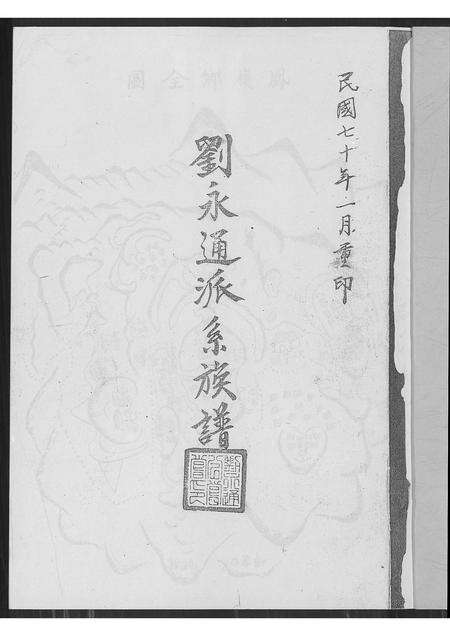 民國七十年一月重印
劉永通派系族譜